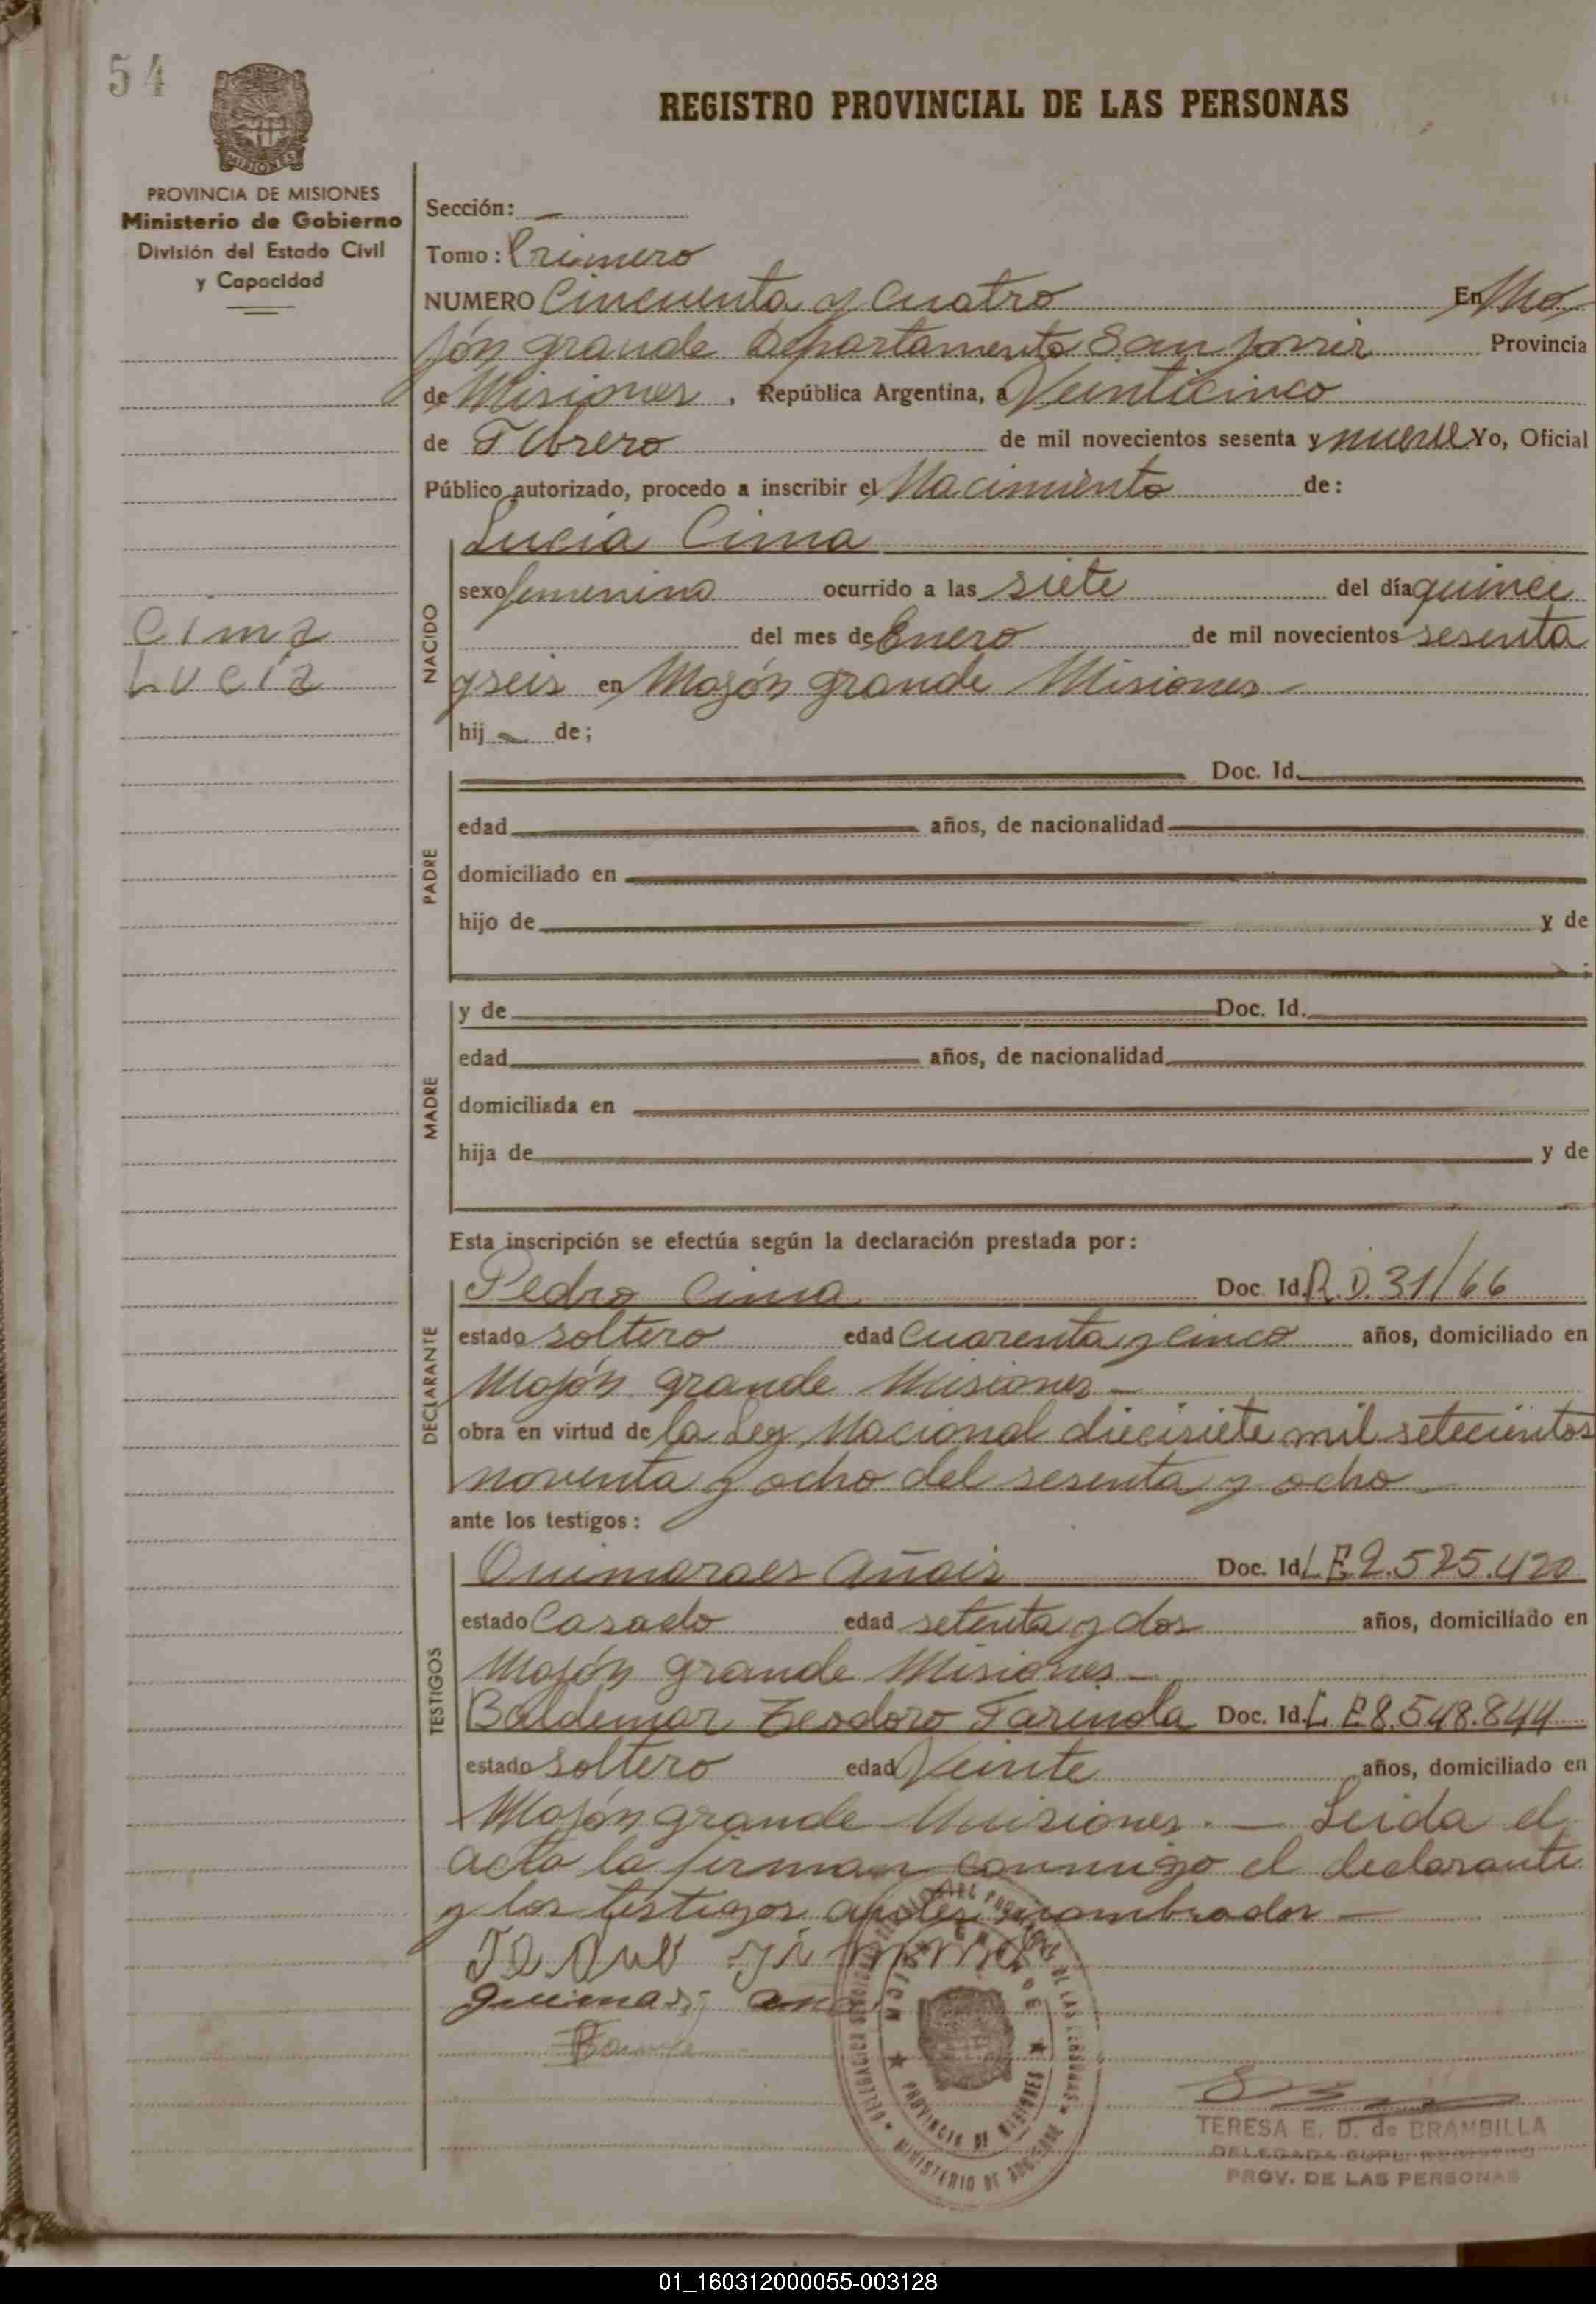 54
MISIONES
PROVINCIA DE MISIONES
Ministerio de Gobierno
División del Estado Civil
y Capacidad
Cima
Lucía
REGISTRO PROVINCIAL DE LAS PERSONAS
Sección: —
Tomo: Primero
NUMERO Cincuenta y Cuatro En Mo
jón grande Departamento San Javier Provincia
de Misiones, República Argentina, a Veinticinco
de Febrero de mil novecientos sesenta y nueve Yo, Oficial
Público autorizado, procedo a inscribir el Nacimiento de:
NACIDO
Lucia Cima
sexo femenino ocurrido a las siete del día quince
del mes de Enero de mil novecientos sesenta
y seis en Mojón grande Misiones
hij de;
PADRE
Doc. Id.
edad años, de nacionalidad
domiciliado en
hijo de y de
;
MADRE
y de Doc. Id.
edad años, de nacionalidad
domiciliada en
hija de y de
Esta inscripción se efectúa según la declaración prestada por:
DECLARANTE
Pedro Cima Doc. Id. R.D.31/66
estado soltero edad cuarenta y cinco años, domiciliado en
Mojón grande Misiones —
obra en virtud de la Ley Nacional diecisiete mil setecientos
noventa y ocho del sesenta y ocho
ante los testigos:
TESTIGOS
Quimaraes Añais Doc. Id. L.E 2.525.420
estado Casado edad setenta y dos años, domiciliado en
Mojón grande Misiones —
Baldemar Teodoro Farinola Doc. Id. L.E 8.548.844
estado soltero edad Veinte años, domiciliado en
Mojón grande Misiones. — Leida el
acta la firman conmigo el declarante
y los testigos antes nombrados —
PROVINCIA DE MISIONES
MINISTERIO DE GOBIERNO
TERESA E. D. de BRAMBILLA
DELEGADA SUPL. REGISTRO
PROV. DE LAS PERSONAS
01_160312000055-003128